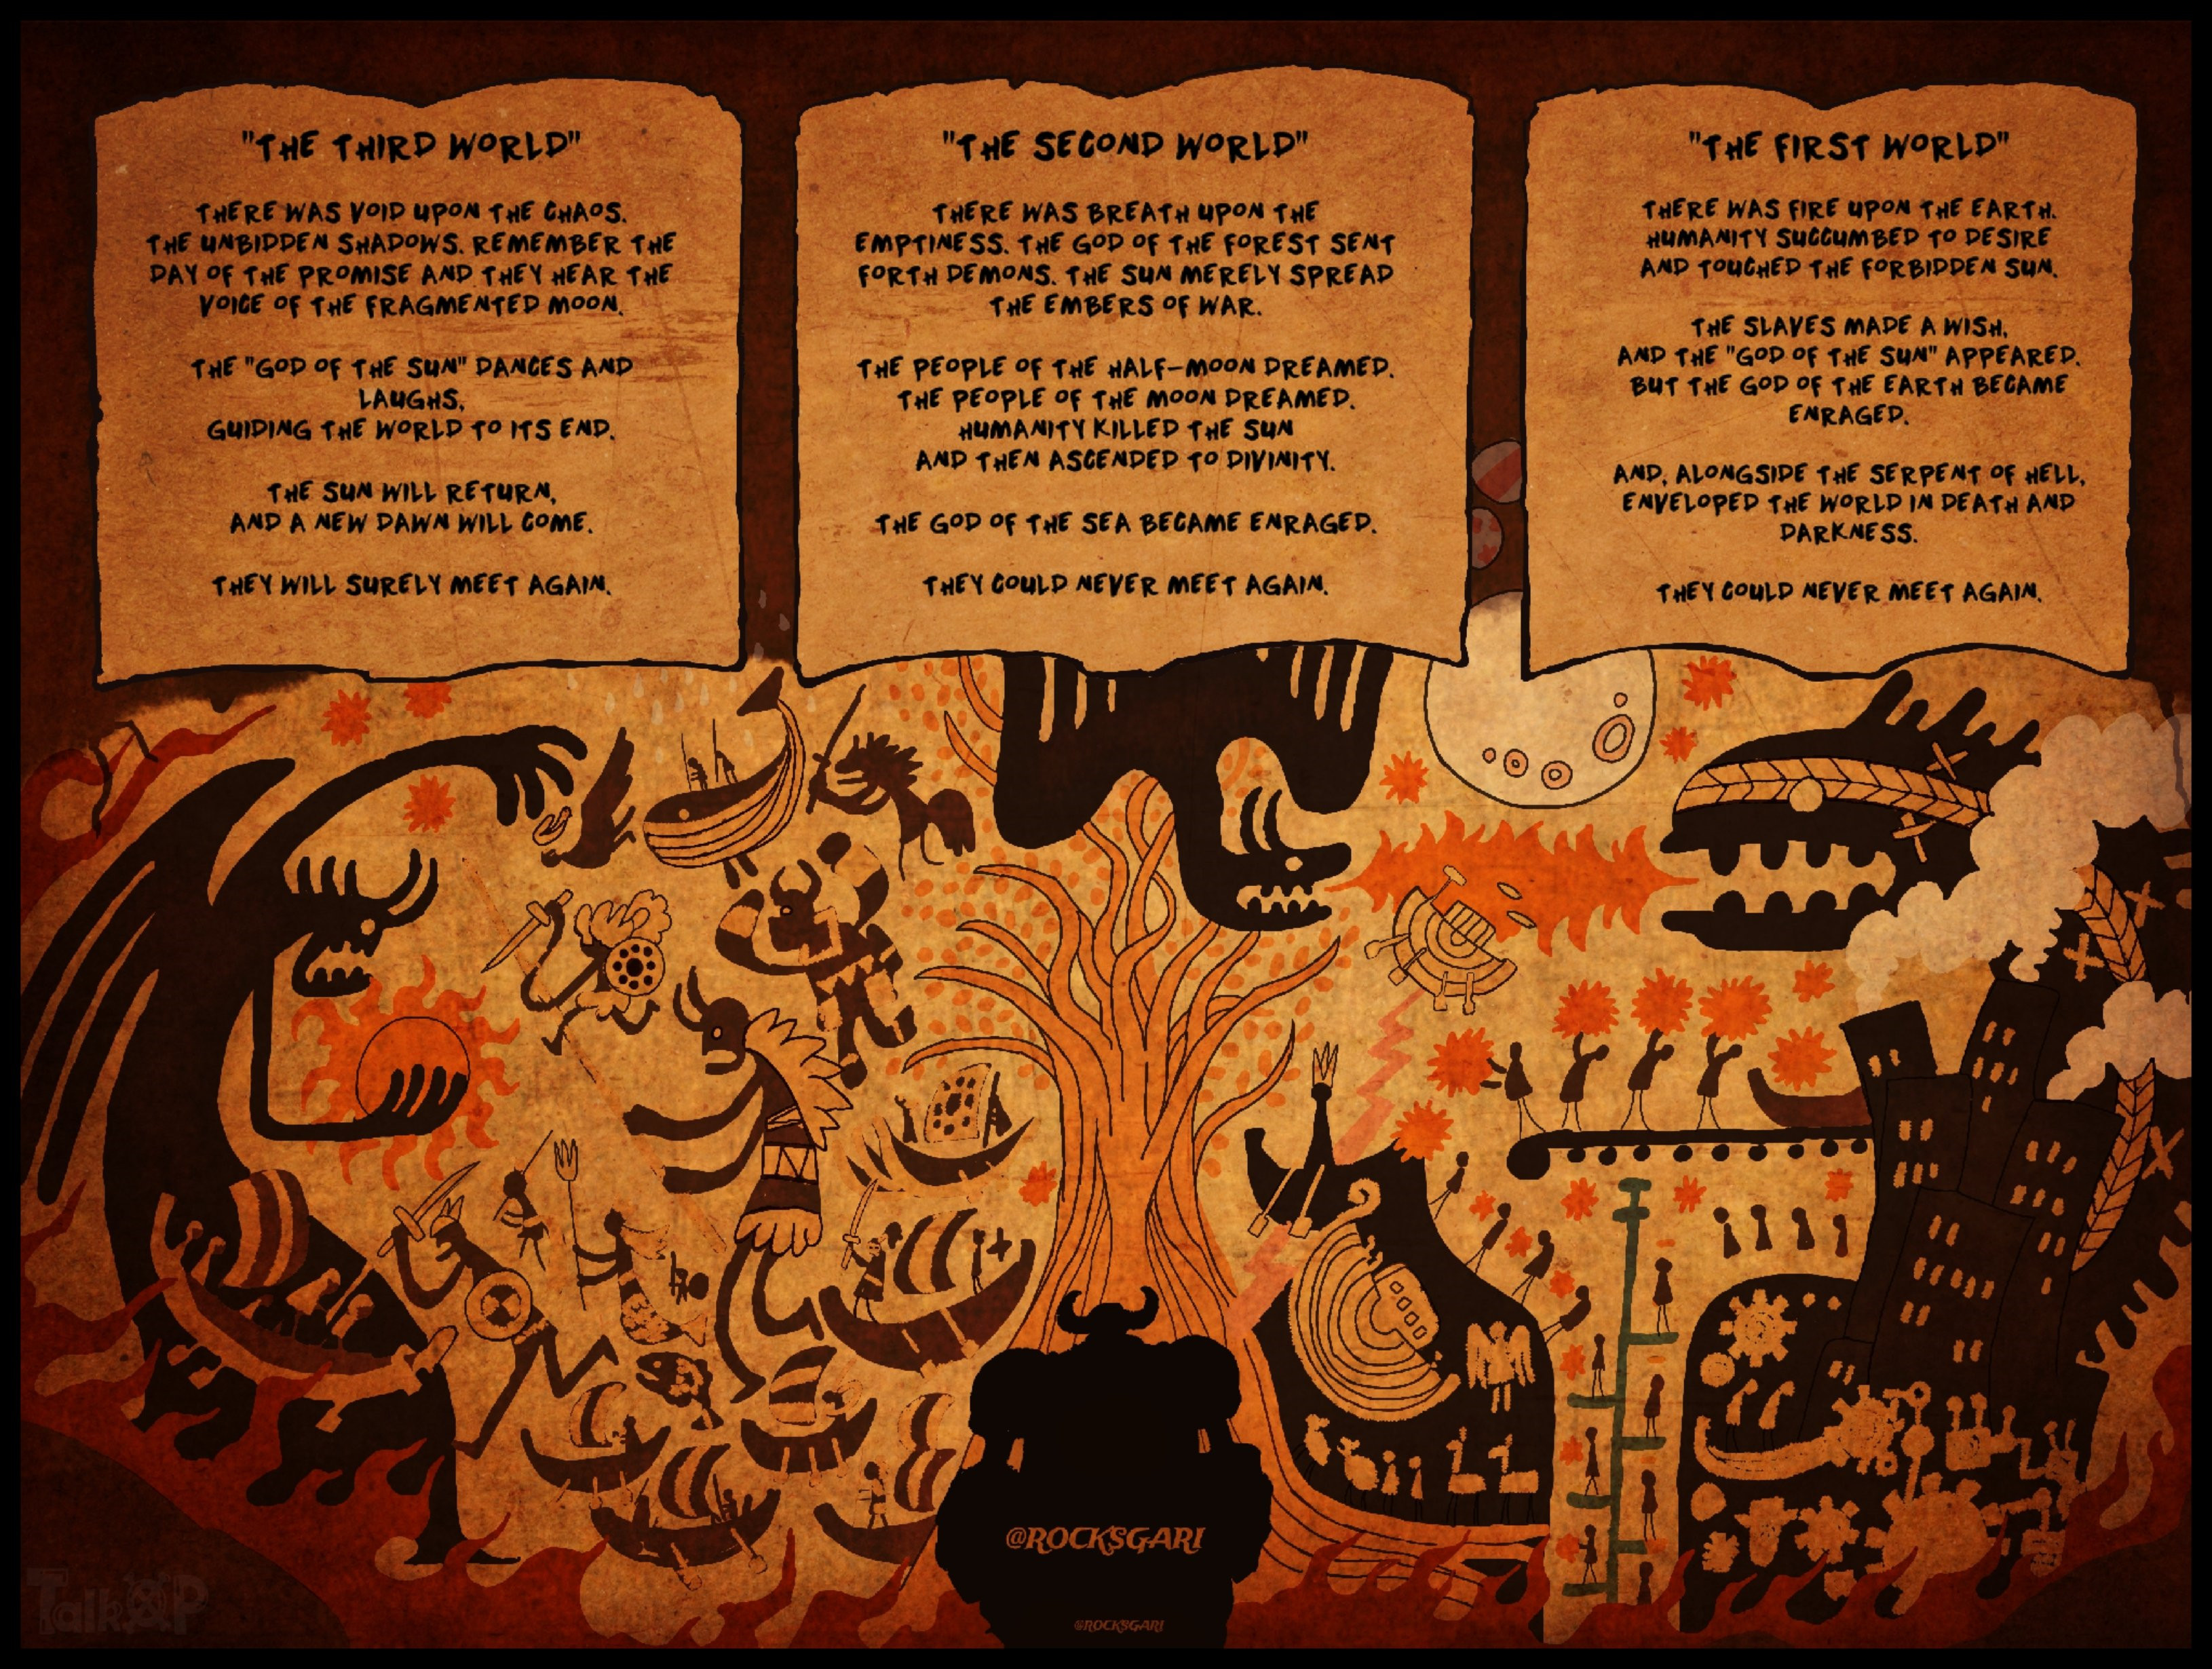 "THE THIRD WORLD"
THERE WAS VOID UPON THE CHAOS.
THE UNBIDDEN SHADOWS. REMEMBER THE
DAY OF THE PROMISE AND THEY HEAR THE
VOICE OF THE FRAGMENTED MOON.
THE "GOD OF THE SUN" DANCES AND
LAUGHS,
GUIDING THE WORLD TO ITS END.
THE SUN WILL RETURN,
AND A NEW DAWN WILL COME.
THEY WILL SURELY MEET AGAIN.
"THE SECOND WORLD"
THERE WAS BREATH UPON THE
EMPTINESS. THE GOD OF THE FOREST SENT
FORTH DEMONS. THE SUN MERELY SPREAD
THE EMBERS OF WAR.
THE PEOPLE OF THE HALF-MOON DREAMED.
THE PEOPLE OF THE MOON DREAMED.
HUMANITY KILLED THE SUN
AND THEN ASCENDED TO DIVINITY.
THE GOD OF THE SEA BECAME ENRAGED.
THEY COULD NEVER MEET AGAIN.
"THE FIRST WORLD"
THERE WAS FIRE UPON THE EARTH.
HUMANITY SUCCUMBED TO DESIRE
AND TOUCHED THE FORBIDDEN SUN.
THE SLAVES MADE A WISH,
AND THE "GOD OF THE SUN" APPEARED.
BUT THE GOD OF THE EARTH BECAME
ENRAGED.
AND, ALONGSIDE THE SERPENT OF HELL,
ENVELOPED THE WORLD IN DEATH AND
DARKNESS.
THEY COULD NEVER MEET AGAIN.
@ROCKSGARI
@ROCKSGARI
TalkOP